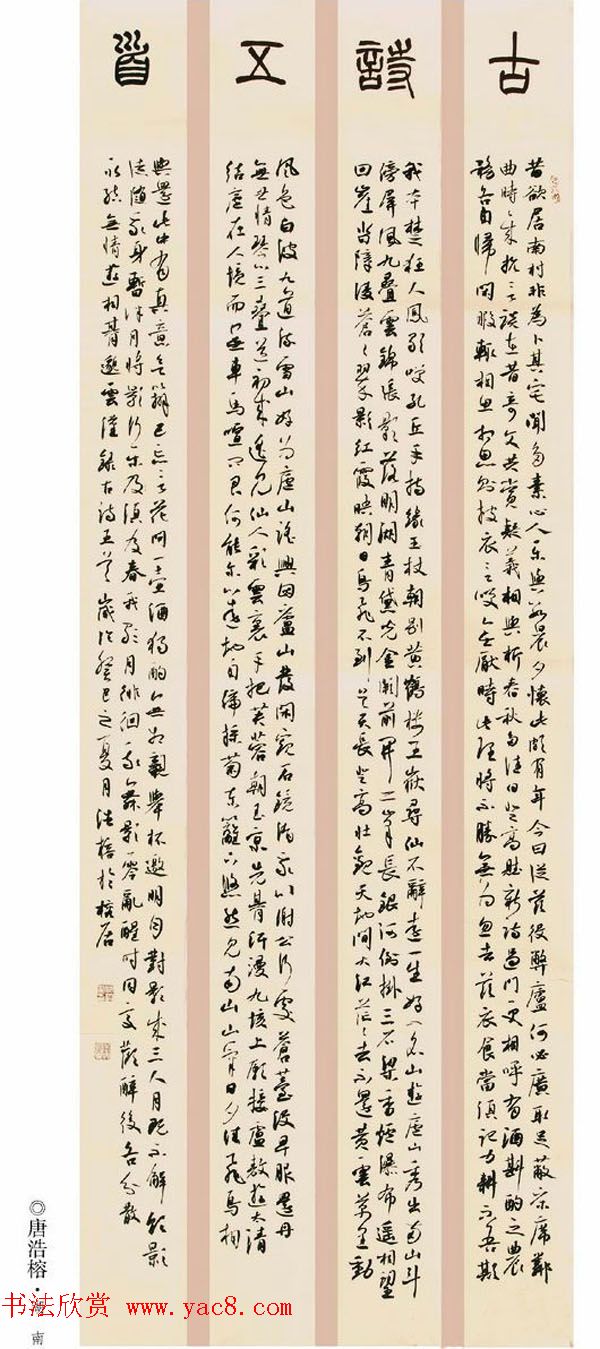 古詩五首
昔欲居南村非為卜其宅聞多素心人樂與數晨夕懷此頗有年今日從茲役弊廬何必廣取足蔽床席鄰
曲時時來抗言談在昔奇文共賞疑義相與析春秋多佳日登高賦新詩過門更相呼有酒斟酌之農
務各自歸閑暇輒相思相思則披衣言笑無厭時此理將不勝無為忽去茲衣食當須記力耕不吾欺
我本楚狂人鳳歌笑孔丘手持綠玉杖朝別黃鶴樓五嶽尋仙不辭遠一生好入名山遊廬山秀出南山斗
傍屏風九疊雲錦張影落明湖青黛光金闕前開二峰長銀河倒掛三石梁香爐瀑布遙相望
回崖沓障凌蒼〻翠影紅霞映朝日鳥飛不到吳天長登高壯觀天地間大江茫〻去不還黃雲萬里動
風色白波九道流雪山好為廬山謠興因廬山發閑窺石鏡清我心謝公行處蒼苔沒早服還丹
無世情琴心三疊道初成遙見仙人彩雲裏手把芙蓉朝玉京先期汗漫九垓上願接盧敖遊太清
結廬在人境而無車馬喧問君何能爾心遠地自偏採菊東籬下悠然見南山山氣日夕佳飛鳥相
與還此中有真意欲辯已忘言花間一壺酒獨酌無相親舉杯邀明月對影成三人月既不解飲影
徒隨我身暫伴月將影行樂及須春我歌月徘徊我舞影零亂醒時同交歡醉後各分散
永結無情遊相期邈雲漢錄古詩五首歲次癸巳之夏月浩榕於榕居
◎唐浩榕·海南
书法欣赏 www.yac8.com